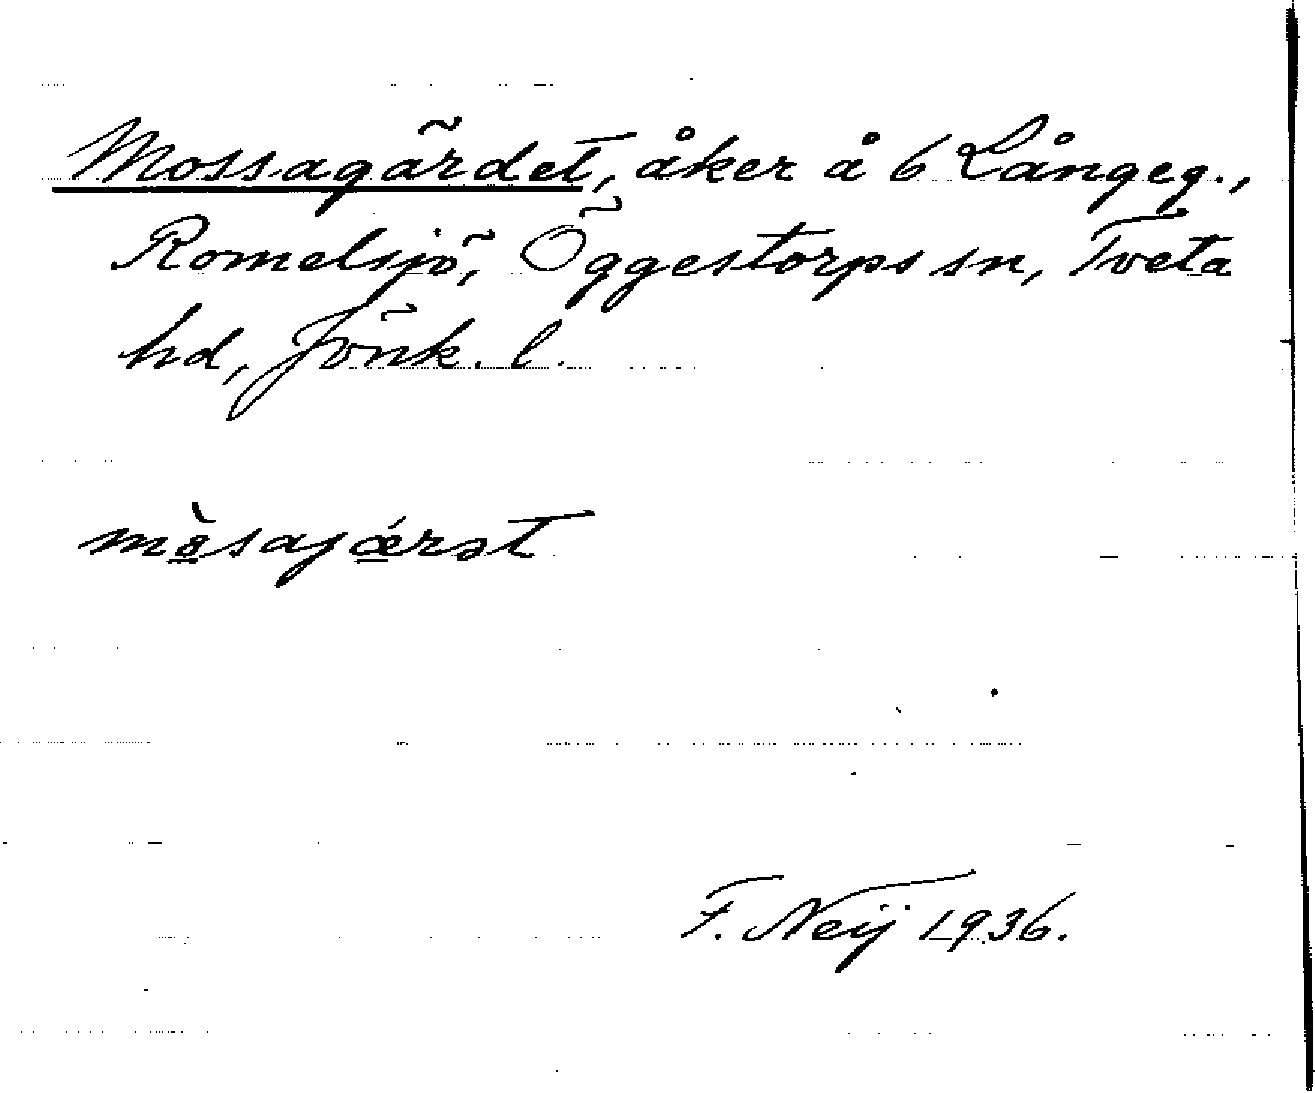 Mossagärdet, åker å 6 Långeg.,
Romelsjö, Öggestorps sn, Tveta
hd, Jönk. l.
mòsajǽrət
F. Neij 1936.